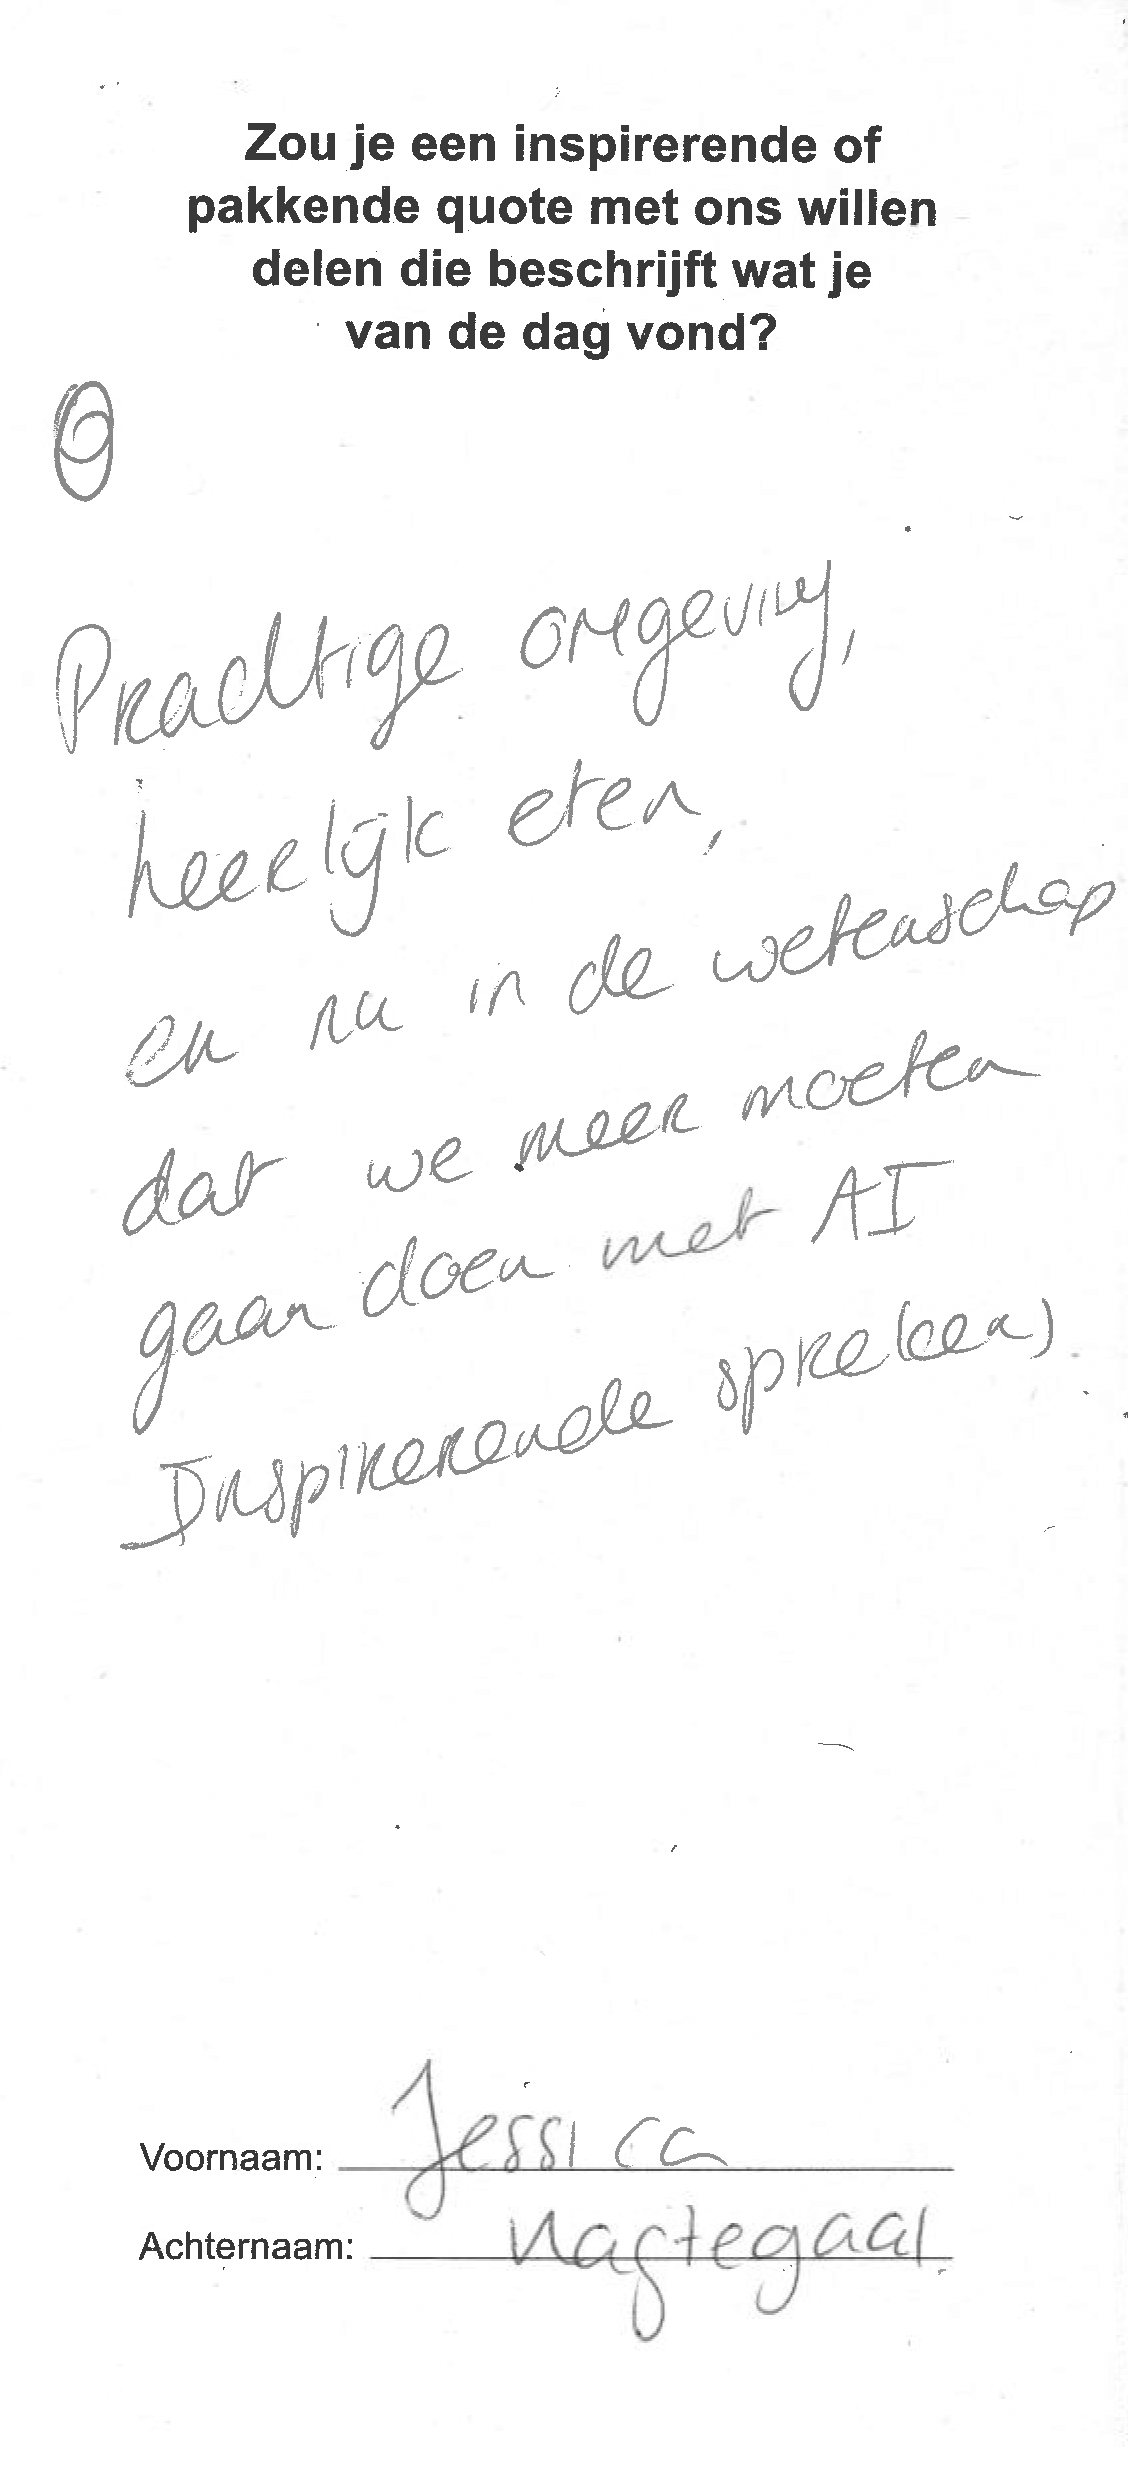 Zou je een inspirerende of
pakkende quote met ons willen
delen die beschrijft wat je
van de dag vond?
Prachtige omgeving,
heerlijk eten,
en nu in de wetenschap
dat we meer moeten
gaan doen met AI
Inspirerende
Voornaam: Jessica
Achternaam: Nagtegaal